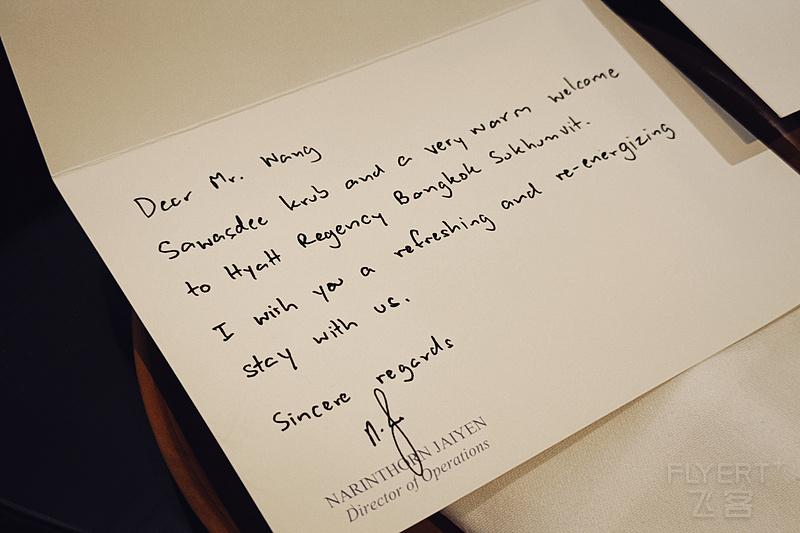 Dear Mr. Wang
Sawasdee krub and a very warm welcome
to Hyatt Regency Bangkok Sukhumvit.
I wish you a refreshing and re-energizing
stay with us.
Sincere regards
NARINTHORN JAIYEN
Director of Operations
FLYERT
飞客